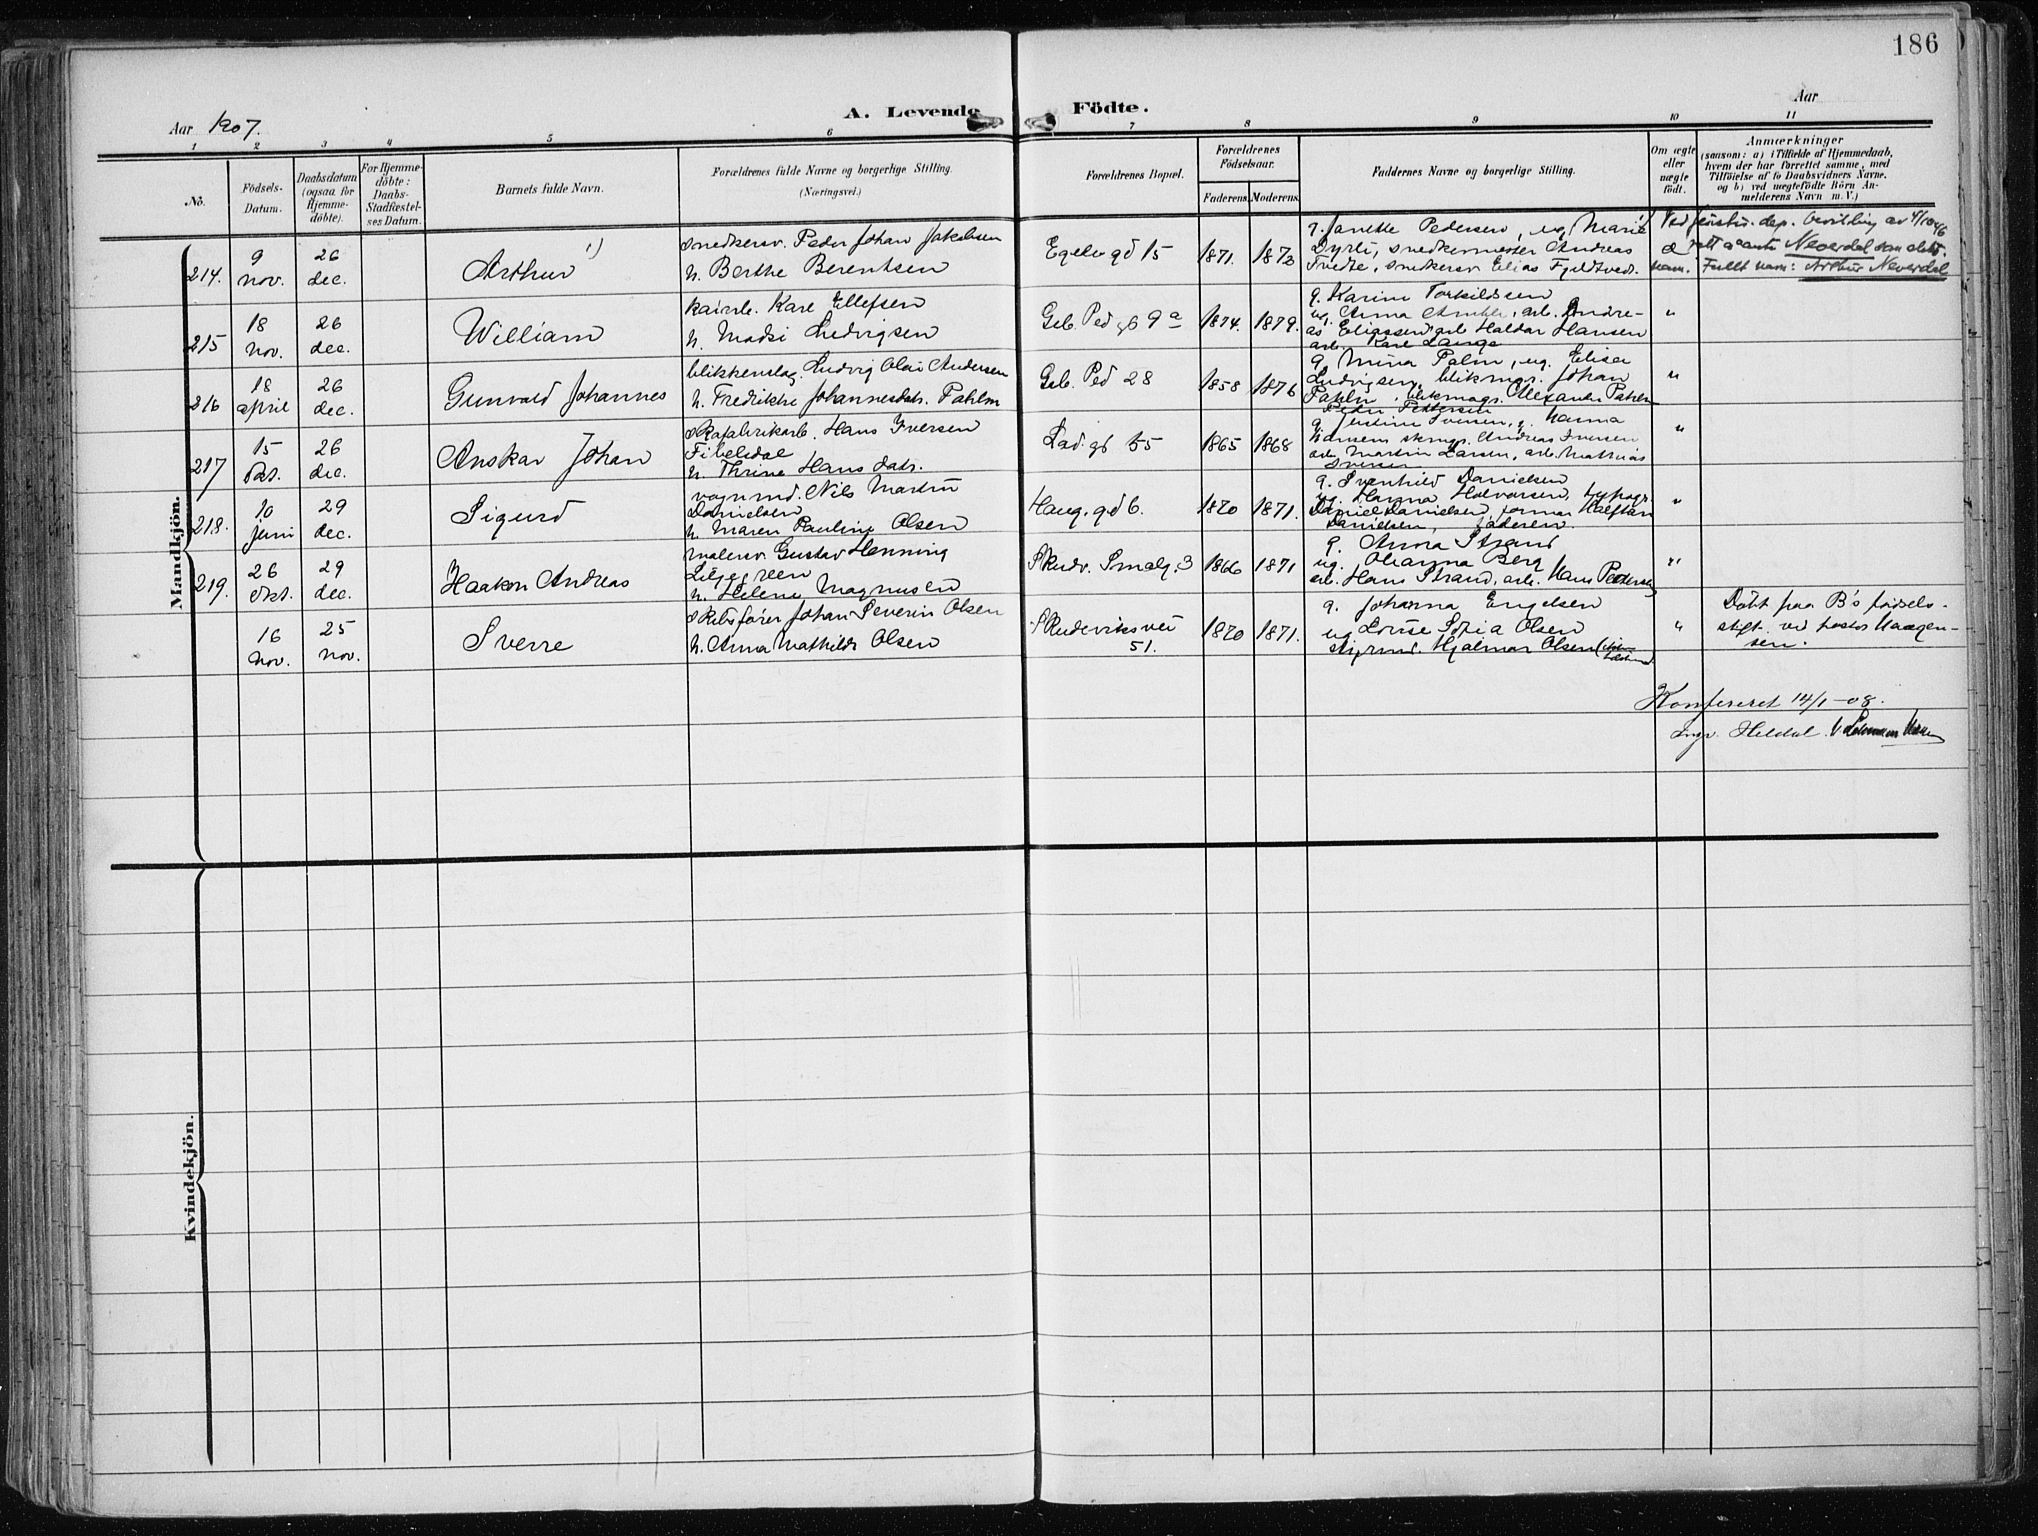 186
A. Levende Födte.
Aar 1907.
Aar
1 2 3 4 5 6 7 8 9 10 11
No.
Födsels-
Datum.
Daabsdatum
(ogsaa for
Hjemme-
döbte).
For Hjemme-
döbte:
Daabs-
Stadfæstel-
ses Datum.
Barnets fulde Navn.
Forældrenes fulde Navne og borgerlige Stilling.
(Næringsvei.)
Forældrenes Bopæl.
Forældrenes
Födselsaar.
Faderens. Moderens.
Faddernes Navne og borgerlige Stilling.
Om ægte
eller
uægte
født.
Anmærkninger
(saasom: a) i Tilfælde af Hjemmedaab,
hvem der har forrettet samme, med
Tilföielse af to Daabsvidners Navne.
og b) ved uægtefödte Börn An-
melderens Navn m. V.)
Mandkjön.
214.
9
nov.
26
dec.
Arthur 1)
snedkersv. Peder Johan Jakobsen
h. Berthe Berentsen
Egeleg gd 15
1871. 1873
g. Janette Pedersen, ug Marie
Dyrli, snedkermester Andreas
Tvedte, snedkersv Elias Fjeldtvedt.
1) Ved justis. dep. bevilling av 4/10 46
rett a anta Neverdal som slekts
nam. Fullt nam: Arthur Neverdal
215
18
nov.
26
dec.
William
kaiarb. Karl Ellefsen
h. Madsi Ludvigsen
Geb. Ped gd 9 a
1874. 1879.
g. Karine Torkildsen
ug. Anna, arb. Andre-
as Eliassen, arb Haldor Hansen
arb. Karl Lange
"
216
18
april
26
dec.
Gunvald Johannes
blikkenslag. Ludvig Olai Andersen
h. Fredrikke Johannesdatr. Pahlm
Geb. Ped 28
1858 1876
g Mina Palm, ug. Elisa
Ludvigsen, blikmag. Johan
Pahlm, blikmag. Alexander Pahlm
Peder Pettersen
"
217
15
okt.
26
dec.
Anskar Johan
skofabrikarb. Hans Iversen
Tibelsdal
h. Thrine Hans datr.
Lad. gd 55
1865 1868
g. Justine Iversen, g. Hanna
Hansen, Andreas Iversen
arb. Martin Larsen, arb. Mathias
Iversen
"
218.
10
juni
29
dec.
Sigurd
vognmd. Nils Martin
Danielsen
h. Maren Pauline Olsen
Haug. gd 6.
1870 1871.
g. Svenhild Danielsen
ug. Hanna Halvorsen, typogr.
Daniel Danielsen, former Halftan
Danielsen, faderen.
"
219.
26
okt.
29
dec.
Haakon Andreas
malersv. Gustav Henning
Liljegreen
h. Helene Magnussen
Skudv. Smalg. 3
1866 1871
g. Anna Strand
ug. Johanna Berg
arb. Hans Strand, arb. Hans Pedersen
"
16
nov.
25
nov.
Sverre
skibsfører Johan Severin Olsen
h. Anna Mathilde Olsen
Skudeviksvei
51.
1870 1871.
g. Johanna Engelsen
ug Lovise Sofia Olsen
styrmd. Hjalmar Olsen
"
Døbt paa B's fødsels-
stift. ved pastor Haagen-
sen.
Konfereret 14/1-08.
Ingv. Heldal.
Kvindekjön.